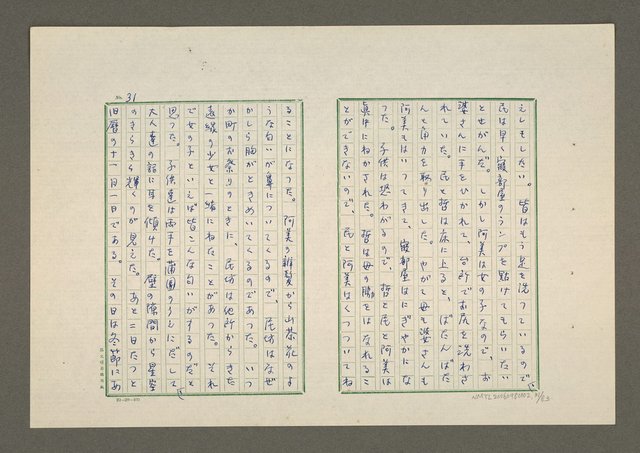 えしもしたい。皆はもう足を洗っているので
民は早く寝部屋のランプを點けてもらいたい
とせがんだ。しかし阿美は女の子なので、お
婆さんに手をひかれて、台所でお尻を洗わさ
れていた。民と哲は床に上ると、ばたんばた
んと角力を取り出した。やがて母も婆さんも
阿美もはいってきて、寝部屋はにぎやかにな
った。子供は恐わがるので、哲と民と阿美は
眞中にねかされた。哲は母の胸をはなれるこ
とができないので、民と阿美はくっついてね
No. 31
ることになった。阿美の辮髪から山茶花のよ
うな匂いが鼻についてくるので、民坊はなぜ
かしら胸がときめいてくるのであった。いつ
か町のお祭りのときに、民坊は他所からきた
遠縁の少女と一緒にねたことがあった。それ
で女の子といえば皆こんな匂いがするのだと
思った。子供達は両手を蒲團のうえにだして
大人達の話に耳を傾けた。壁の隙間から星空
のきらきら輝くのが見えた。あと二日たつと
旧暦の十一月一日である。その日は冬節にあ
NMTL20060930002